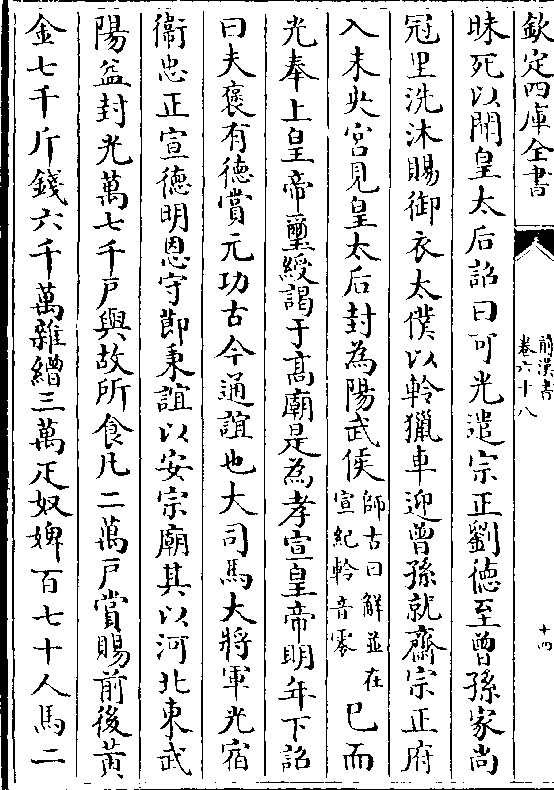 欽定四庫全書
前漢書
卷六十八
十四
昧死以聞皇太后詔曰可光遣宗正劉德至曾孫家尚
冠里洗沐賜御衣太僕以軨獵車迎曾孫就齋宗正府
入未央宮見皇太后封為陽武侯師古曰解並在宣紀軨音零已而
光奉上皇帝璽綬謁于高廟是為孝宣皇帝明年下詔
曰夫褒有德賞元功古今通誼也大司馬大將軍光宿
衛忠正宣德明恩守節秉誼以安宗廟其以河北東武
陽益封光萬七千戶與故所食凡二萬戶賞賜前後黃
金七千斤錢六千萬雜繒三萬疋奴婢百七十人馬二